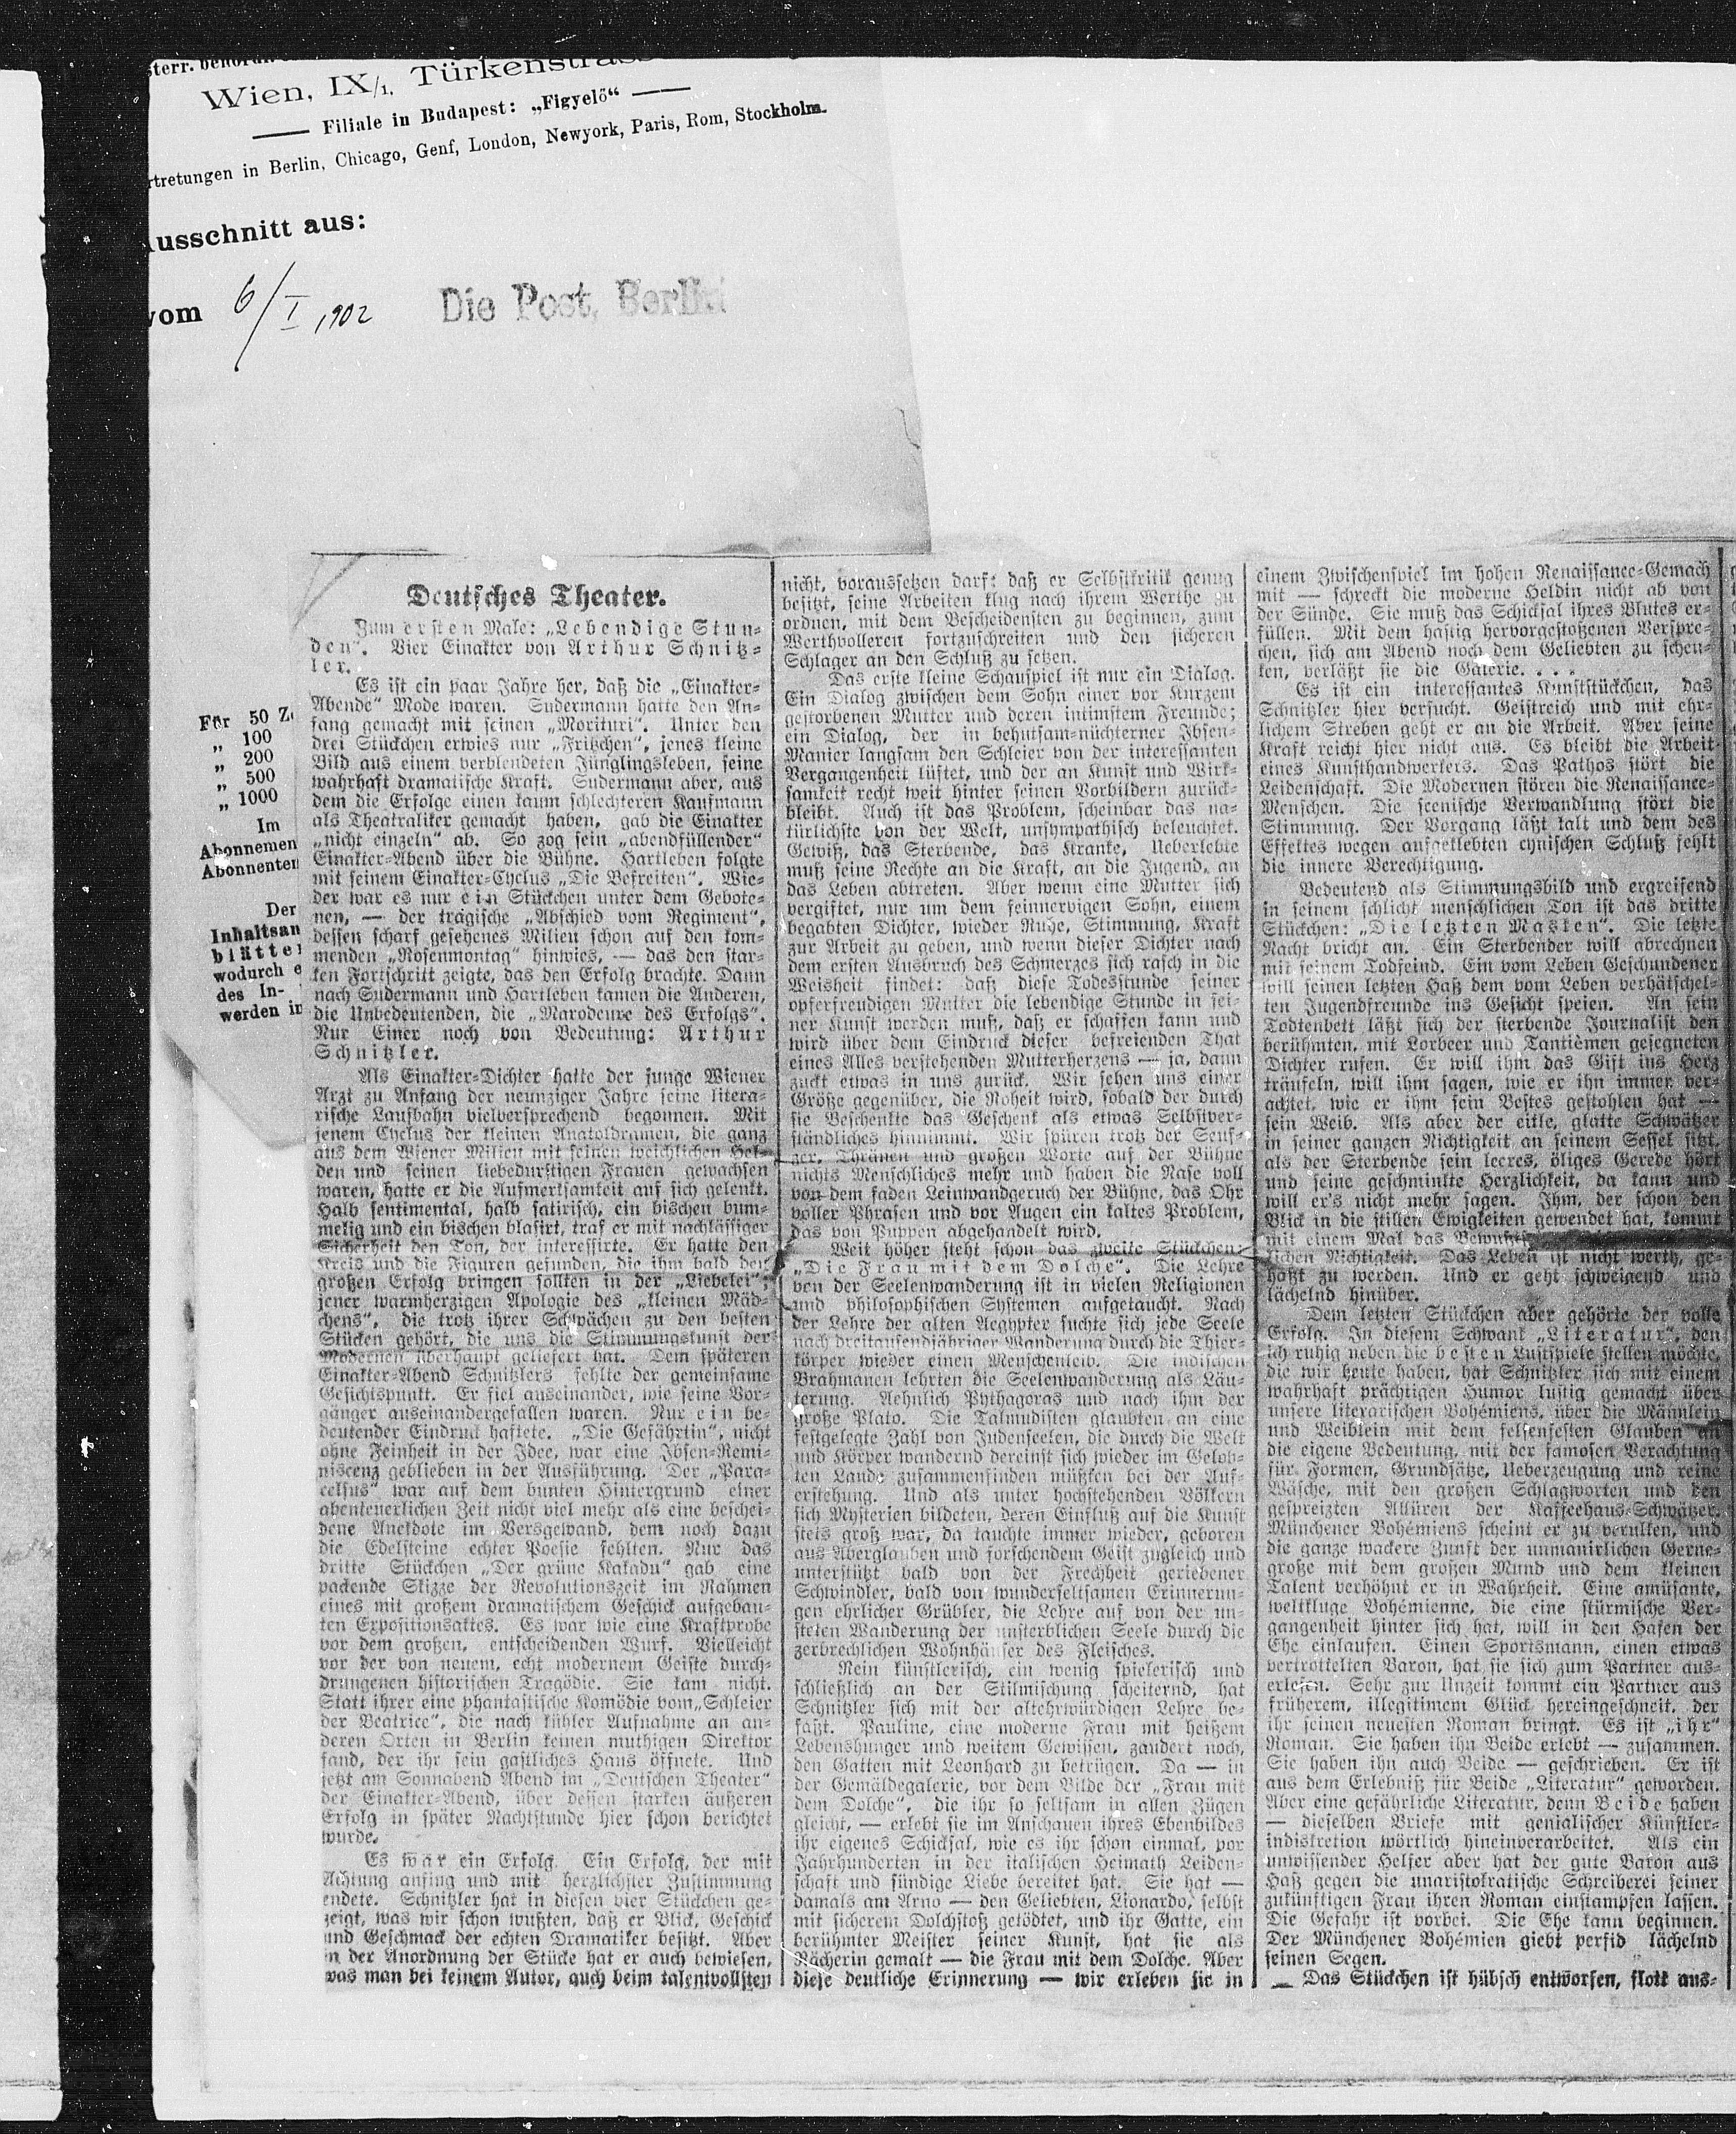 österr. behördl.
Wien, IX/1, Türkenstrasse
Filiale in Budapest: „Figyelő“
rtretungen in Berlin, Chicago, Genf, London, Newyork, Paris, Rom, Stockholm.
Ausschnitt aus:
vom 6/I 1902
Die Post, Berlin
Für 50 Z
„ 100
„ 200
„ 500
„ 1000
Im
Abonnemen
Abonnenten
Der
Inhaltsan
blätter
wodurch e
des In-
werden in
Deutsches Theater.
Zum ersten Male: „Lebendige Stun-
den“. Vier Einakter von Arthur Schnitz-
ler.
Es ist ein paar Jahre her, daß die „Einakter-
Abende“ Mode waren. Sudermann hatte den An-
fang gemacht mit seinen „Morituri“. Unter den
drei Stückchen erwies nur „Fritzchen“, jenes kleine
Bild aus einem verblendeten Jünglingsleben, seine
wahrhaft dramatische Kraft. Sudermann aber, aus
dem die Erfolge einen kaum schlechteren Kaufmann
als Theatraliker gemacht haben, gab die Einakter
„nicht einzeln“ ab. So zog sein „abendfüllender“
Einakter-Abend über die Bühne. Hartleben folgte
mit seinem Einakter-Cyclus „Die Befreiten“. Wie-
der war es nur ein Stückchen unter dem Gebote-
nen, — der tragische „Abschied vom Regiment“,
dessen scharf gesehenes Milieu schon auf den kom-
menden „Rosenmontag“ hinwies, — das den star-
ken Fortschritt zeigte, das den Erfolg brachte. Dann
nach Sudermann und Hartleben kamen die Anderen,
die Unbedeutenden, die „Marodeure des Erfolgs“.
Nur Einer noch von Bedeutung: Arthur
Schnitzler.
Als Einakter-Dichter hatte der junge Wiener
Arzt zu Anfang der neunziger Jahre seine litera-
rische Laufbahn vielversprechend begonnen. Mit
jenem Cyclus der kleinen Anatoldramen, die ganz
aus dem Wiener Milieu mit seinen weichlichen Hel-
den und seinen liebedurstigen Frauen gewachsen
waren, hatte er die Aufmerksamkeit auf sich gelenkt.
Halb sentimental, halb satirisch, ein bischen bum-
melig und ein bischen blasirt, traf er mit nachlässiger
Sicherheit den Ton, der interessirte. Er hatte den
Kreis und die Figuren gefunden, die ihm bald den
großen Erfolg bringen sollten in der „Liebelei“;
jener warmherzigen Apologie des „kleinen Mäd-
chens“, die trotz ihrer Schwächen zu den besten
Stücken gehört, die uns die Stimmungskunst der
Modernen überhaupt geliefert hat. Dem späteren
Einakter-Abend Schnitzlers fehlte der gemeinsame
Gesichtspunkt. Er fiel auseinander, wie seine Vor-
gänger auseinandergefallen waren. Nur ein be-
deutender Eindruck haftete. „Die Gefährtin“, nicht
ohne Feinheit in der Idee, war eine Ibsen-Remi-
niscenz geblieben in der Ausführung. Der „Para-
celsus“ war auf dem bunten Hintergrund einer
abenteuerlichen Zeit nicht viel mehr als eine beschei-
dene Anekdote im Versgewand, dem noch dazu
die Edelsteine echter Poesie fehlten. Nur das
dritte Stückchen „Der grüne Kakadu“ gab eine
packende Skizze der Revolutionszeit im Rahmen
eines mit großem dramatischem Geschick aufgebau-
ten Expositionsaktes. Es war wie eine Kraftprobe
vor dem großen, entscheidenden Wurf. Vielleicht
vor der von neuem, echt modernem Geiste durch-
drungenen historischen Tragödie. Sie kam nicht.
Statt ihrer eine phantastische Komödie vom „Schleier
der Beatrice“, die nach kühler Aufnahme an an-
deren Orten in Berlin keinen muthigen Direktor
fand, der ihr sein gastliches Haus öffnete. Und
jetzt am Sonnabend Abend im „Deutschen Theater“
der Einakter-Abend, über dessen starken äußeren
Erfolg in später Nachtstunde hier schon berichtet
wurde.
Es war ein Erfolg. Ein Erfolg, der mit
Achtung anfing und mit herzlichster Zustimmung
endete. Schnitzler hat in diesen vier Stückchen ge-
zeigt, was wir schon wußten, daß er Blick, Geschick
und Geschmack der echten Dramatiker besitzt. Aber
in der Anordnung der Stücke hat er auch bewiesen,
was man bei keinem Autor, auch beim talentvollsten
nicht, voraussetzen darf: daß er Selbstkritik genug
besitzt, seine Arbeiten klug nach ihrem Werthe zu
ordnen, mit dem Bescheidensten zu beginnen, zum
Werthvolleren fortzuschreiten und den sicheren
Schlager an den Schluß zu setzen.
Das erste kleine Schauspiel ist nur ein Dialog.
Ein Dialog zwischen dem Sohn einer vor Kurzem
gestorbenen Mutter und deren intimstem Freunde;
ein Dialog, der in behutsam-nüchterner Ibsen-
Manier langsam den Schleier von der interessanten
Vergangenheit lüftet, und der an Kunst und Wirk-
samkeit recht weit hinter seinen Vorbildern zurück-
bleibt. Auch ist das Problem, scheinbar das na-
türlichste von der Welt, unsympathisch beleuchtet.
Gewiß, das Sterbende, das Kranke, Ueberlebte
muß seine Rechte an die Kraft, an die Jugend, an
das Leben abtreten. Aber wenn eine Mutter sich
vergiftet, nur um dem feinnervigen Sohn, einem
begabten Dichter, wieder Ruhe, Stimmung, Kraft
zur Arbeit zu geben, und wenn dieser Dichter nach
dem ersten Ausbruch des Schmerzes sich rasch in die
Weisheit findet: daß diese Todesstunde seiner
opferfreudigen Mutter die lebendige Stunde in sei-
ner Kunst werden muß, daß er schaffen kann und
wird über dem Eindruck dieser befreienden That
eines Alles verstehenden Mutterherzens — ja, dann
zuckt etwas in uns zurück. Wir sehen uns einer
Größe gegenüber, die Roheit wird, sobald der durch
sie Beschenkte das Geschenk als etwas Selbstver-
ständliches hinnimmt. Wir spüren trotz der Seuf-
zer, Thränen und großen Worte auf der Bühne
nichts Menschliches mehr und haben die Nase voll
von dem faden Leinwandgeruch der Bühne, das Ohr
voller Phrasen und vor Augen ein kaltes Problem,
das von Puppen abgehandelt wird.
Weit höher steht schon das zweite Stückchen:
„Die Frau mit dem Dolche“. Die Lehre
von der Seelenwanderung ist in vielen Religionen
und philosophischen Systemen aufgetaucht. Nach
der Lehre der alten Aegypter suchte sich jede Seele
nach dreitausendjähriger Wanderung durch die Thier-
körper wieder einen Menschenleib. Die indischen
Brahmanen lehrten die Seelenwanderung als Läu-
terung. Aehnlich Pythagoras und nach ihm der
große Plato. Die Talmudisten glaubten an eine
festgelegte Zahl von Judenseelen, die durch die Welt
und Körper wandernd dereinst sich wieder im Gelob-
ten Lande zusammenfinden müßten bei der Auf-
erstehung. Und als unter hochstehenden Völkern
sich Mysterien bildeten, deren Einfluß auf die Kunst
stets groß war, da tauchte immer wieder, geboren
aus Aberglauben und forschendem Geist zugleich und
unterstützt bald von der Frechheit geriebener
Schwindler, bald von wunderseltsamen Erinnerun-
gen ehrlicher Grübler, die Lehre auf von der un-
steten Wanderung der unsterblichen Seele durch die
zerbrechlichen Wohnhäuser des Fleisches.
Rein künstlerisch, ein wenig spielerisch und
schließlich an der Stilmischung scheiternd, hat
Schnitzler sich mit der altehrwürdigen Lehre be-
faßt. Pauline, eine moderne Frau mit heißem
Lebenshunger und weitem Gewissen, zaudert noch,
den Gatten mit Leonhard zu betrügen. Da — in
der Gemäldegalerie, vor dem Bilde der „Frau mit
dem Dolche“, die ihr so seltsam in allen Zügen
gleicht, — erlebt sie im Anschauen ihres Ebenbildes
ihr eigenes Schicksal, wie es ihr schon einmal, vor
Jahrhunderten in der italischen Heimath Leiden-
schaft und sündige Liebe bereitet hat. Sie hat —
damals am Arno — den Geliebten, Lionardo, selbst
mit sicherem Dolchstoß getödtet, und ihr Gatte, ein
berühmter Meister seiner Kunst, hat sie als
Rächerin gemalt — die Frau mit dem Dolche. Aber
diese deutliche Erinnerung — wir erleben sie in
einem Zwischenspiel im hohen Renaissance-Gemach
mit — schreckt die moderne Heldin nicht ab von
der Sünde. Sie muß das Schicksal ihres Blutes er-
füllen. Mit dem hastig hervorgestoßenen Verspre-
chen, sich am Abend noch dem Geliebten zu schen-
ken, verläßt sie die Galerie. . . .
Es ist ein interessantes Kunststückchen, das
Schnitzler hier versucht. Geistreich und mit ehr-
lichem Streben geht er an die Arbeit. Aber seine
Kraft reicht hier nicht aus. Es bleibt die Arbeit
eines Kunsthandwerkers. Das Pathos stört die
Leidenschaft. Die Modernen stören die Renaissance-
Menschen. Die scenische Verwandlung stört die
Stimmung. Der Vorgang läßt kalt und dem des
Effektes wegen aufgeklebten cynischen Schluß fehlt
die innere Berechtigung.
Bedeutend als Stimmungsbild und ergreifend
in seinem schlicht menschlichen Ton ist das dritte
Stückchen: „Die letzten Masken“. Die letzte
Nacht bricht an. Ein Sterbender will abrechnen
mit seinem Todfeind. Ein vom Leben Geschundener
will seinen letzten Haß dem vom Leben verhätschel-
ten Jugendfreunde ins Gesicht speien. An sein
Todtenbett läßt sich der sterbende Journalist den
berühmten, mit Lorbeer und Tantièmen gesegneten
Dichter rufen. Er will ihm das Gift ins Herz
träufeln, will ihm sagen, wie er ihn immer ver-
achtet, wie er ihm sein Bestes gestohlen hat —
sein Weib. Als aber der eitle, glatte Schwätzer
in seiner ganzen Nichtigkeit an seinem Sessel sitzt,
als der Sterbende sein leeres, öliges Gerede hört
und seine geschminkte Herzlichkeit, da kann und
will er's nicht mehr sagen. Ihm, der schon den
Blick in die stillen Ewigkeiten gewendet hat, kommt
mit einem Mal das Bewußts
lichen Nichtigkeit. Das Leben ist nicht werth, ge-
haßt zu werden. Und er geht schweigend und
lächelnd hinüber.
Dem letzten Stückchen aber gehörte der volle
Erfolg. In diesem Schwank „Literatur“, den
ich ruhig neben die besten Lustspiele stellen möchte,
die wir heute haben, hat Schnitzler sich mit einem
wahrhaft prächtigen Humor lustig gemacht über
unsere literarischen Bohémiens, über die Männlein
und Weiblein mit dem felsenfesten Glauben an
die eigene Bedeutung, mit der famosen Verachtung
für Formen, Grundsätze, Ueberzeugung und reine
Wäsche, mit den großen Schlagworten und den
gespreizten Allüren der Kaffeehaus-Schwätzer.
Münchener Bohémiens scheint er zu verulken, und
die ganze wackere Zunft der unmanirlichen Gerne-
große mit dem großen Mund und dem kleinen
Talent verhöhnt er in Wahrheit. Eine amüsante,
weltkluge Bohémienne, die eine stürmische Ver-
gangenheit hinter sich hat, will in den Hafen der
Ehe einlaufen. Einen Sportsmann, einen etwas
vertrottelten Baron, hat sie sich zum Partner aus-
erlesen. Sehr zur Unzeit kommt ein Partner aus
früherem, illegitimem Glück hereingeschneit, der
ihr seinen neuesten Roman bringt. Es ist „ihr“
Roman. Sie haben ihn Beide erlebt — zusammen.
Sie haben ihn auch Beide — geschrieben. Er ist
aus dem Erlebniß für Beide „Literatur“ geworden.
Aber eine gefährliche Literatur, denn Beide haben
— dieselben Briefe mit genialischer Künstler-
indiskretion wörtlich hineinverarbeitet. Als ein
unwissender Helfer aber hat der gute Baron aus
Haß gegen die unaristokratische Schreiberei seiner
zukünftigen Frau ihren Roman einstampfen lassen.
Die Gefahr ist vorbei. Die Ehe kann beginnen.
Der Münchener Bohémien giebt perfid lächelnd
seinen Segen.
— Das Stückchen ist hübsch entworfen, flott aus-